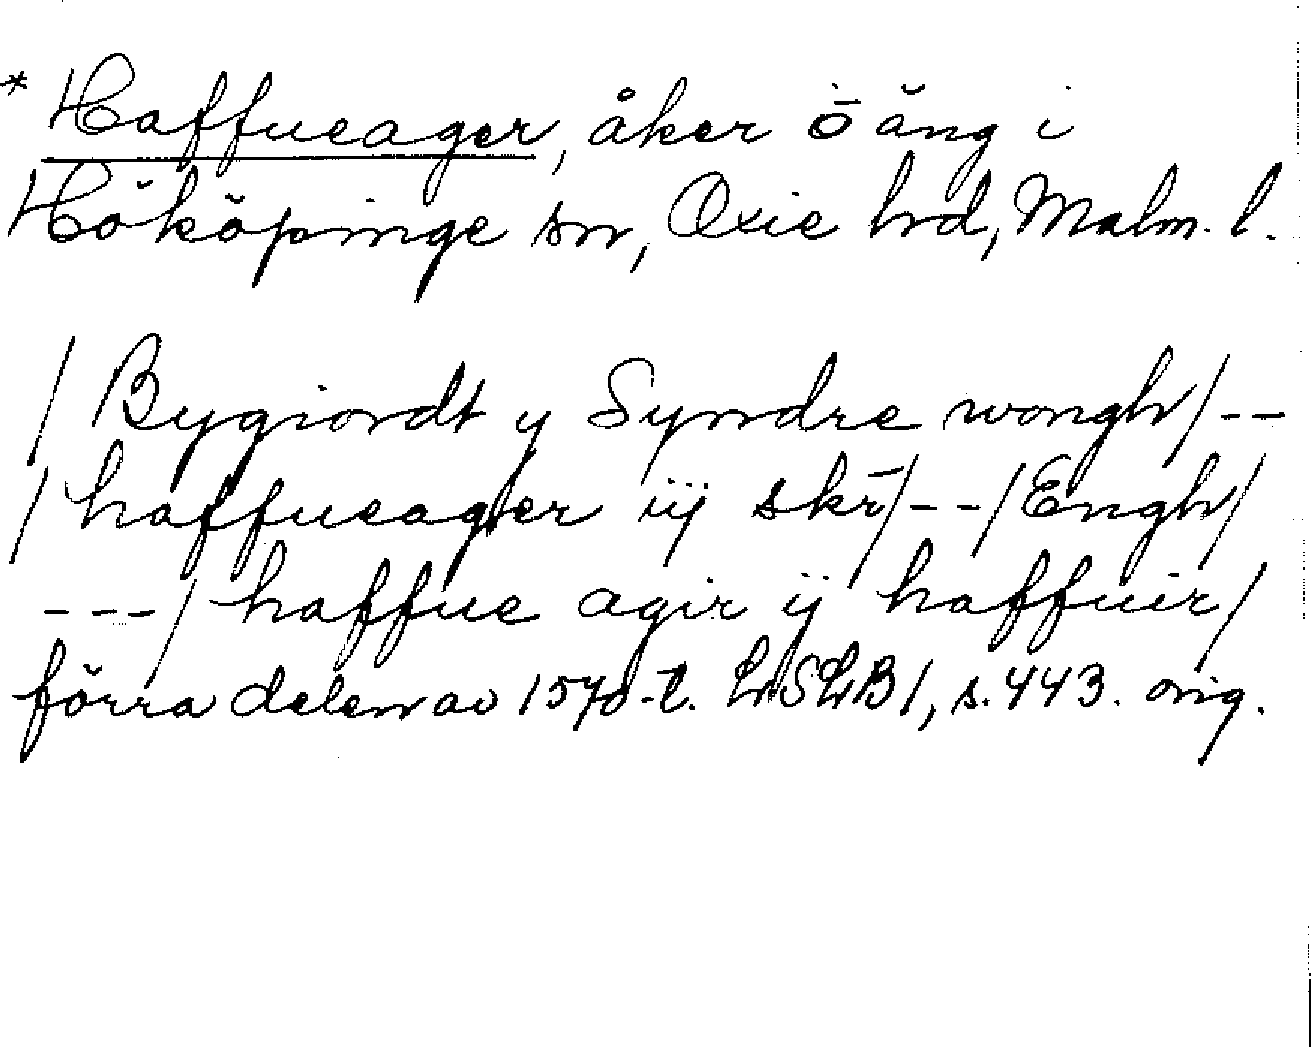 * Haffueager, åker o äng i
Hököpinge sn, Oxie hrd, Malm. l.
/ Bygiordt y Syndre wongh/--
/haffueager iij skr̄/--/Engh/
---/ haffue agir ij haffuir/
förra delen av 1570-t. LSLB1, s. 443. orig.